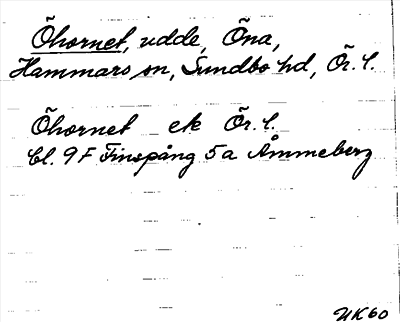 Öhornet, udde, Öna,
Hammars sn, Sundbo hd, Ör. l.
Öhornet ek Ör. l.
bl. 9F Finspång 5a Åmmeberg
UK60